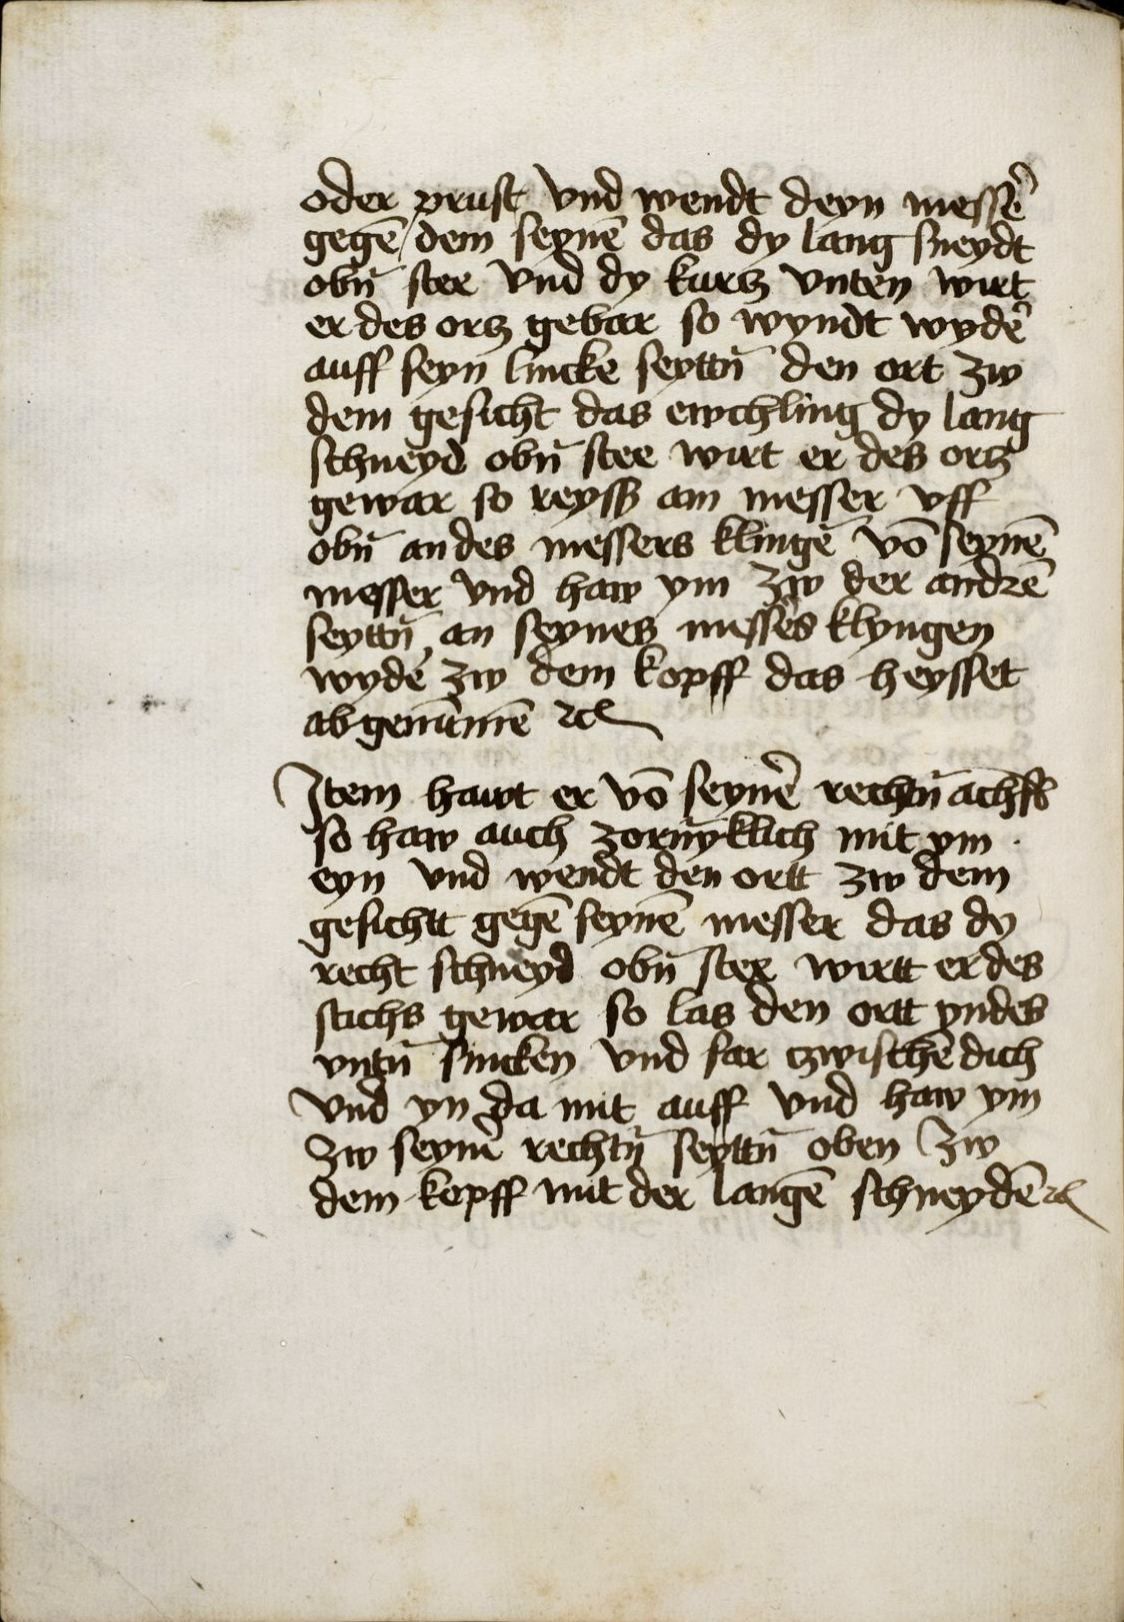 oder prust vnd wendt deyn messē
gegē dem seynē das dy lang sneydt
obn̄ stee vnd dy kurtz vnten wirt
er des ortz gebar so wyndt wydē
auff seyn lincke seyttn̄ den ort zw
dem gesicht das ewchling dy lang
schneyd obn̄ stee wirt er des ortz
gewar so reyss am messer vff
obn̄ an des messers klingē vō seynē
messer vnd haw ym zw der andrē
seyttn̄ an seynes messēs klyngen
wydē zw dem kopff das heysset
abgenūmē ꝛcꝭ
Item hawt er vō seynē rechtn̄ achsß
so haw auch zornn̄yklich mit ym
eyn vnd wendt den ortt zw dem
gesichtt gegē seynē messer das dy
recht schneyd obn̄ stee wirtt er des
stichs gewar so las den ortt yndes
vntn̄ sincken vnd far tzwischē dich
vnd yn da mit auff vnd haw ym
zw seynē rechtn̄ seyttn̄ oben zw
dem kopff mit der langē schneydē ꝛc